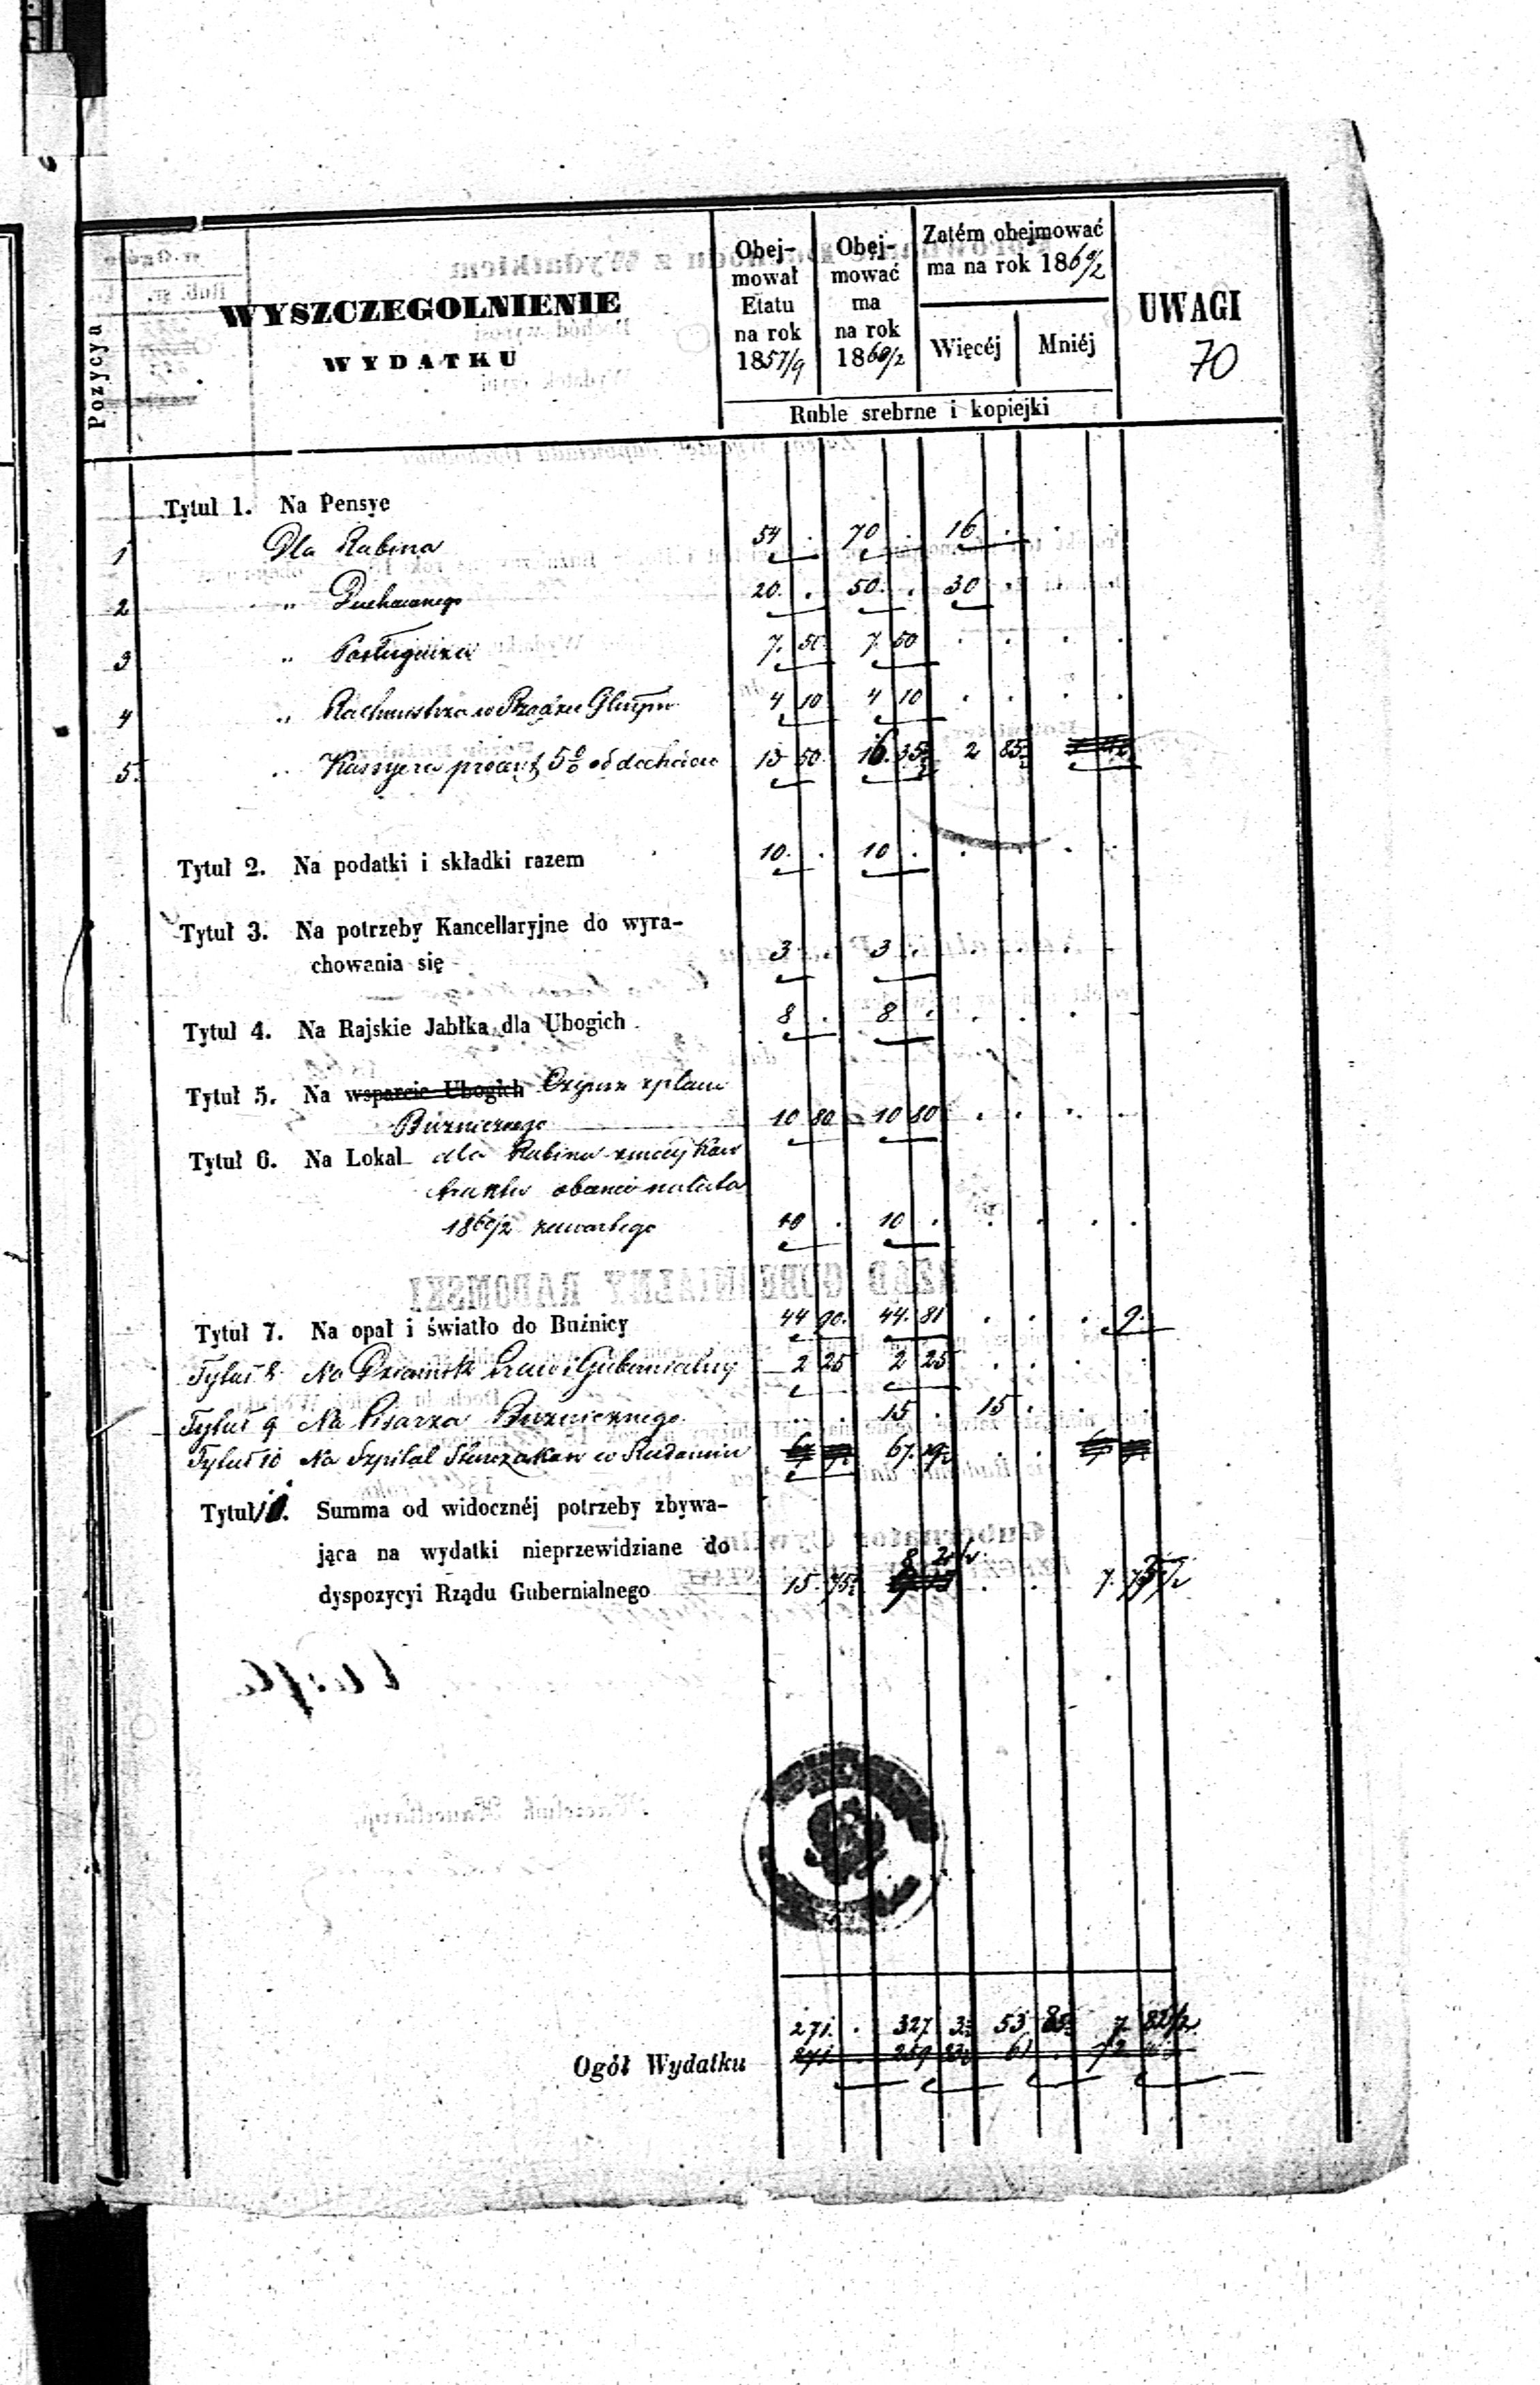 Pozycya
WYSZCZEGOLNIENIE
WYDATKU
Obej-
mował
Etatu
na rok
1857/9
Obej-
mować
ma
na rok
1860/2
Zatém obejmować
ma na rok 1860/2
Więcéj
Mniéj
UWAGI
70
Ruble srebrne i kopiejki
Tytuł 1. Na Pensye
1 Dla Rabina 54 . 70 . 16 . . .
2 " Duchownego 20. . 50. . 30 . . .
3 " 7. 50 7. 50 . . . .
4 " 4 10 4 10 . . . .
5. " Kassyera procent 5% od dochodu 13 50 16. 35 2 85
Tytuł 2. Na podatki i składki razem 10. . 10 . . . . .
Tytuł 3. Na potrzeby Kancellaryjne do wyra-
chowania się 3 . 3 . . . . .
Tytuł 4. Na Rajskie Jabłka dla Ubogich 8 . 8 . . . . .
Tytuł 5. Na wsparcie Ubogich Czynsz z placu
Buźnicznego 10 80 10 80 . . . .
Tytuł 6. Na Lokal dla Rabina
1860/2 zawartego 10 . 10 . . . . .
RZĄD GUBERNIALNY RADOMSKI
Tytuł 7. Na opał i światło do Buźnicy 44 90. 44. 81 . . . 9.
Tytuł 8 Na Dziennik Praw i Gubernialny 2 25 2 25 . . . .
Tytuł 9 Na Pisarza Buźnicznego . . 15 . 15 . . .
Tytuł 10 Na Szpital Starozakon w Radomiu 67.
Tytuł 11. Summa od widocznéj potrzeby zbywa-
jąca na wydatki nieprzewidziane do
dyspozycyi Rządu Gubernialnego 15. 8
271. . 327 53 85 7 82 1/2
Ogół Wydatku